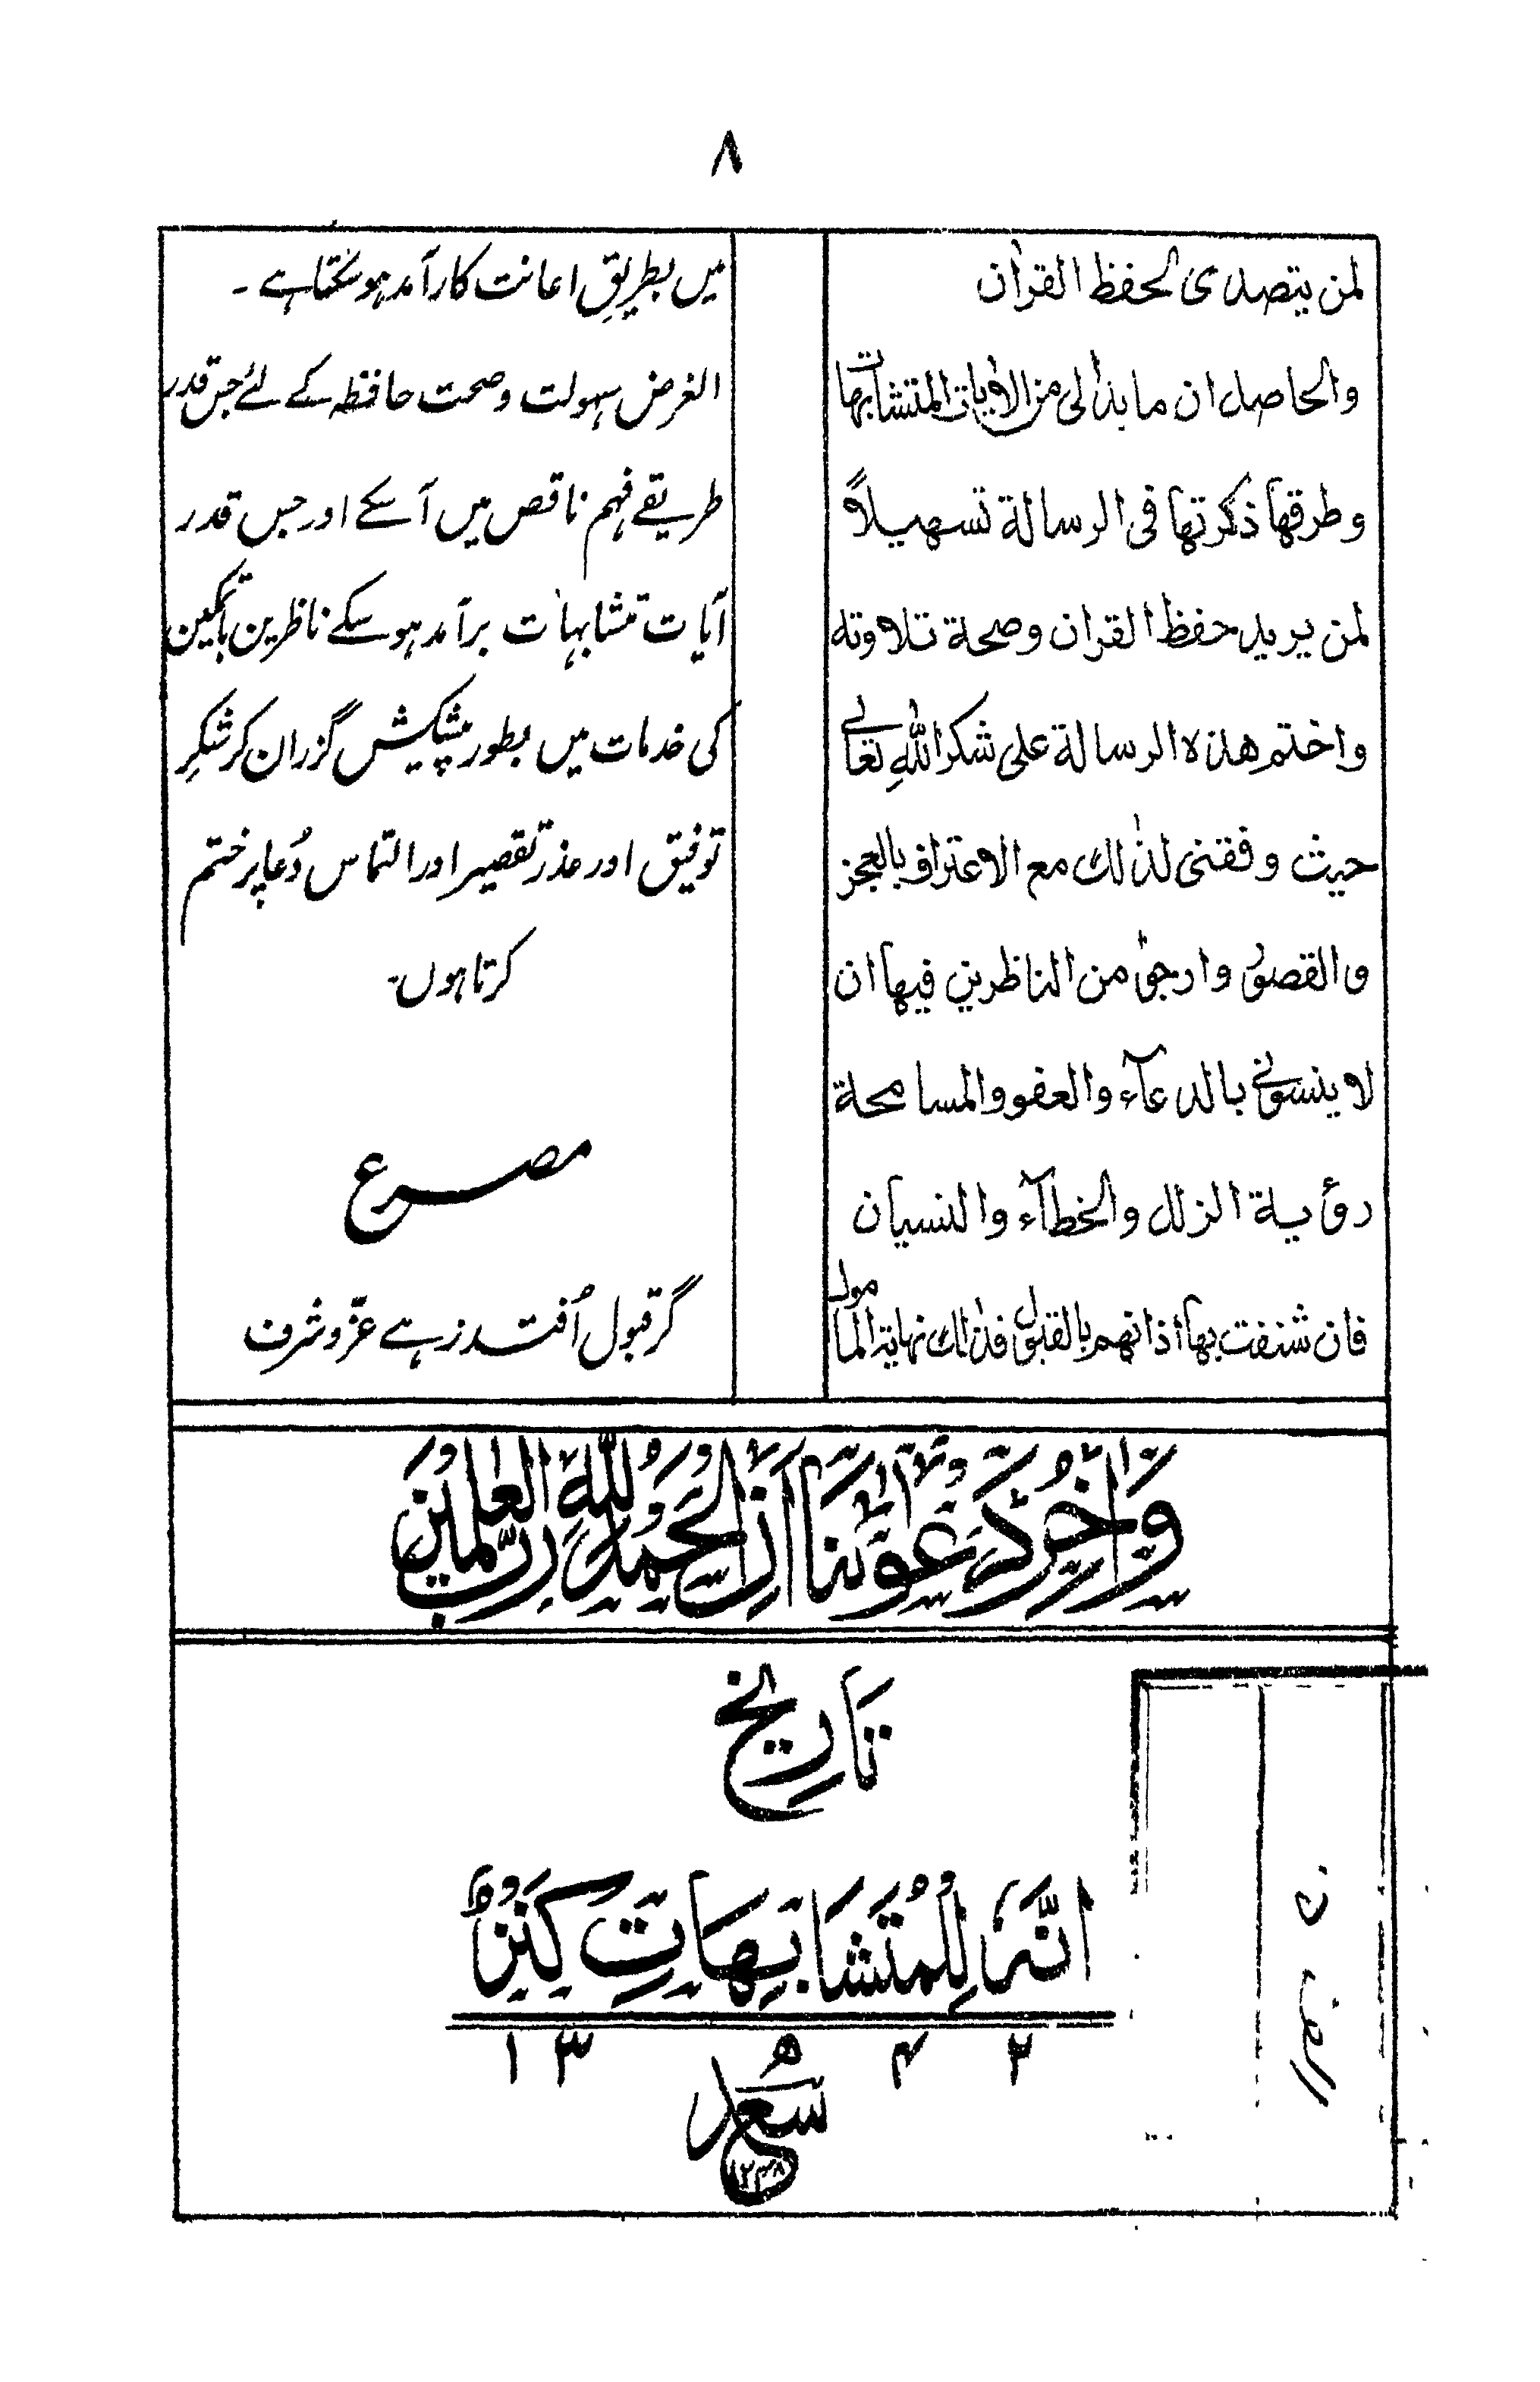 ٨
لمن يتصدى لحفظ القران
والحاصل ان ما بدالی من الاٰيات المتشابهات
وطرقها ذكرتها فى الرسالة تسهيلاً
لمن يريد حفظ القران وصحة تلاوته
واختم هذه الرسالة على شكر اللهِ تعالٰى
حيث وفقنى لذٰلك مع الاعتراف بالعجز
والقصور وارجو من الناظرين فيها ان
لا ينسونى بالدعآء والعفو والمسامحة
رؤية الزلل والخطآء والنسيان
فان شنفت بها أذانهم بالقبول فذٰلك نهاية المامول
میں بطریقِ اعانت کار آمد ہو سکتا ہے ۔
الغرض سہولت و صحت حافظہ کے لئے جس قدر
طریقے فہم ناقص میں آ سکے اور جس قدر
آیات متشابہات برآمد ہو سکے ناظرین باتمکین
کی خدمات میں بطور پیشکش گزران کر شکرِ
توفیق اور عذر تقصیر اور التماس دُعا پر ختم
کرتا ہوں۔
مصرع
گر قبول اُفتد زہے عزّ و شرف
وَاٰخِرُ دَعْوٰنَا اَنِ الْحَمْدُ لِلّٰهِ رَبِّ الْعٰلَمِيْنَ
تَارِيخ
اِنَّهٗ لِلْمُتَشَابِهَاتِ كَنْزٌ
١٣٤٢ ھ